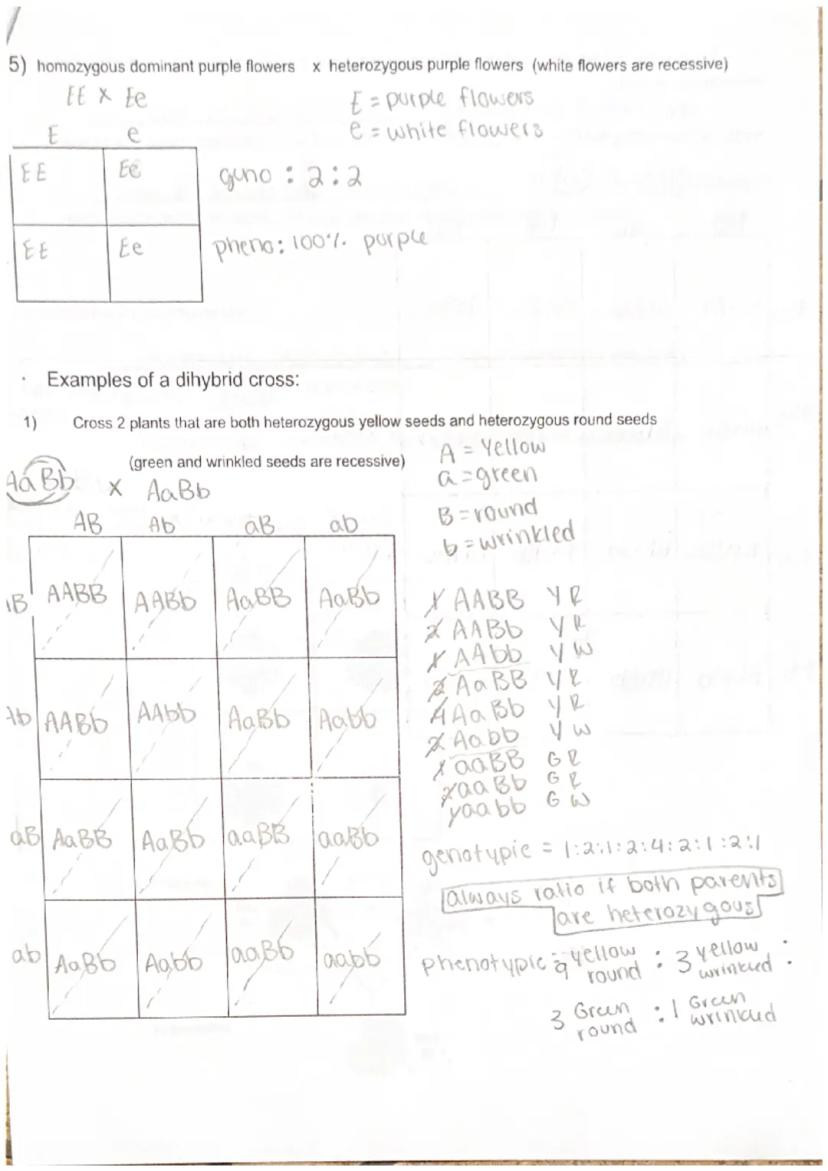 5) homozygous dominant purple flowers x heterozygous purple flowers (white flowers are recessive)
EE X Ee
E = purple flowers
e = white flowers
E e
EE Ee
geno : 2:2
EE Ee
pheno: 100% purple
Examples of a dihybrid cross:
1) Cross 2 plants that are both heterozygous yellow seeds and heterozygous round seeds
(green and wrinkled seeds are recessive)
A = Yellow
a = green
B = round
b = wrinkled
AaBb X AaBb
AB Ab aB ab
B AABB AABb AaBB AaBb
Ab AABb AAbb AaBb Aabb
aB AaBB AaBb aaBB aaBb
ab AaBb Aabb aaBb aabb
1 AABB YR
2 AABb YR
1 AAbb YW
2 AaBB YR
4 AaBb YR
2 Aabb YW
1 aaBB GR
2 aaBb GR
1 aabb GW
genotypic = 1:2:1:2:4:2:1:2:1
always ratio if both parents
are heterozygous
phenotypic = 9 yellow round : 3 yellow wrinkled :
3 Green round : 1 Green wrinkled